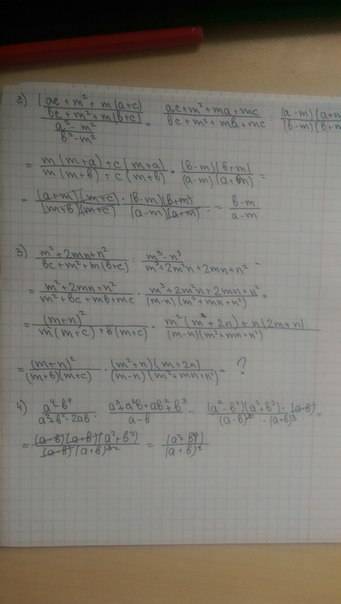 2) (ac + m² + m(a+c)) / (bc + m² + m(b+c)) : (a² - m²) / (b² - m²) = (ac + m² + ma + mc) / (bc + m² + mb + mc) · (a-m)(a+m) / (b-m)(b+m)
= (m(m+a) + c(m+a)) / (m(m+b) + c(m+b)) · (b-m)(b+m) / (a-m)(a+m) =
= (a+m)(m+c) / (m+b)(m+c) · (b-m)(b+m) / (a-m)(a+m) = (b-m) / (a-m)
3) (m² + 2mn + n²) / (bc + m² + m(b+c)) : (m³ - n³) / (m³ + 2m²n + 2mn + n²) =
= (m² + 2mn + n²) / (m² + bc + mb + mc) · (m³ + 2m²n + 2mn + n²) / (m-n)(m² + mn + n²) =
= (m+n)² / (m(m+c) + b(m+c)) · (m²(m + 2n) + n(2m + n)) / (m-n)(m² + mn + n²)
= (m+n)² / (m+b)(m+c) · (m² + n)(m + 2n) / (m-n)(m² + mn + n²) = ?
4) (a⁴ - b⁴) / (a² + b² - 2ab) : (a³ + a²b + ab² + b³) / (a-b) = (a² - b²)(a² + b²) · (a-b) / (a-b)² · (a+b)³ =
= (a-b)(a+b)(a² + b²) / (a-b)(a+b)³ = (a² + b²) / (a+b)²